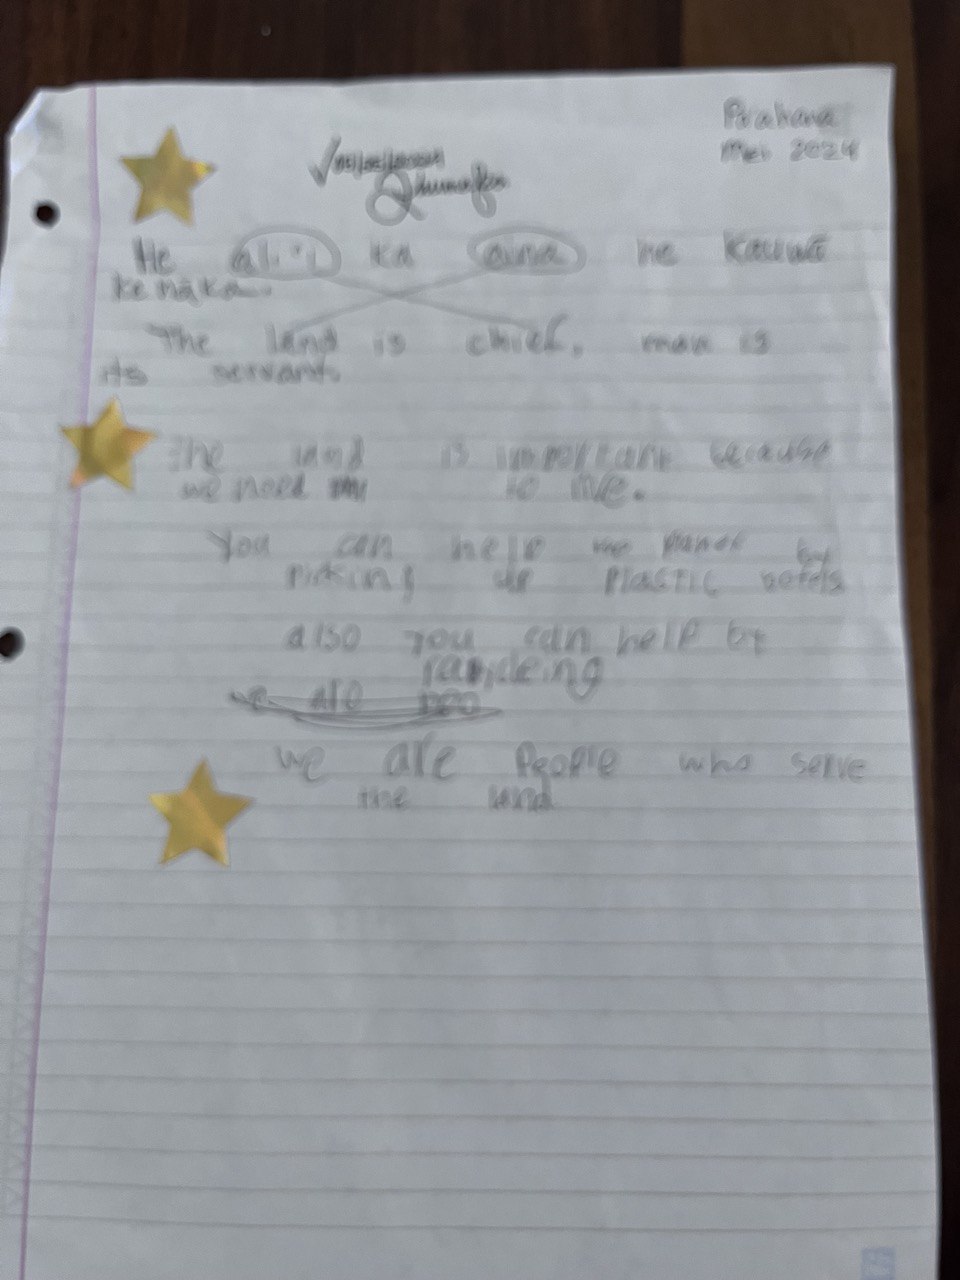 2024
He ali'i ka aina he Kauwa
ke naka.
The land is chief, man is
its servant.
The land is important because
we need to me.
You can help by
picking up Plastic
also you can help by
we are peo
we are People who serve
the land